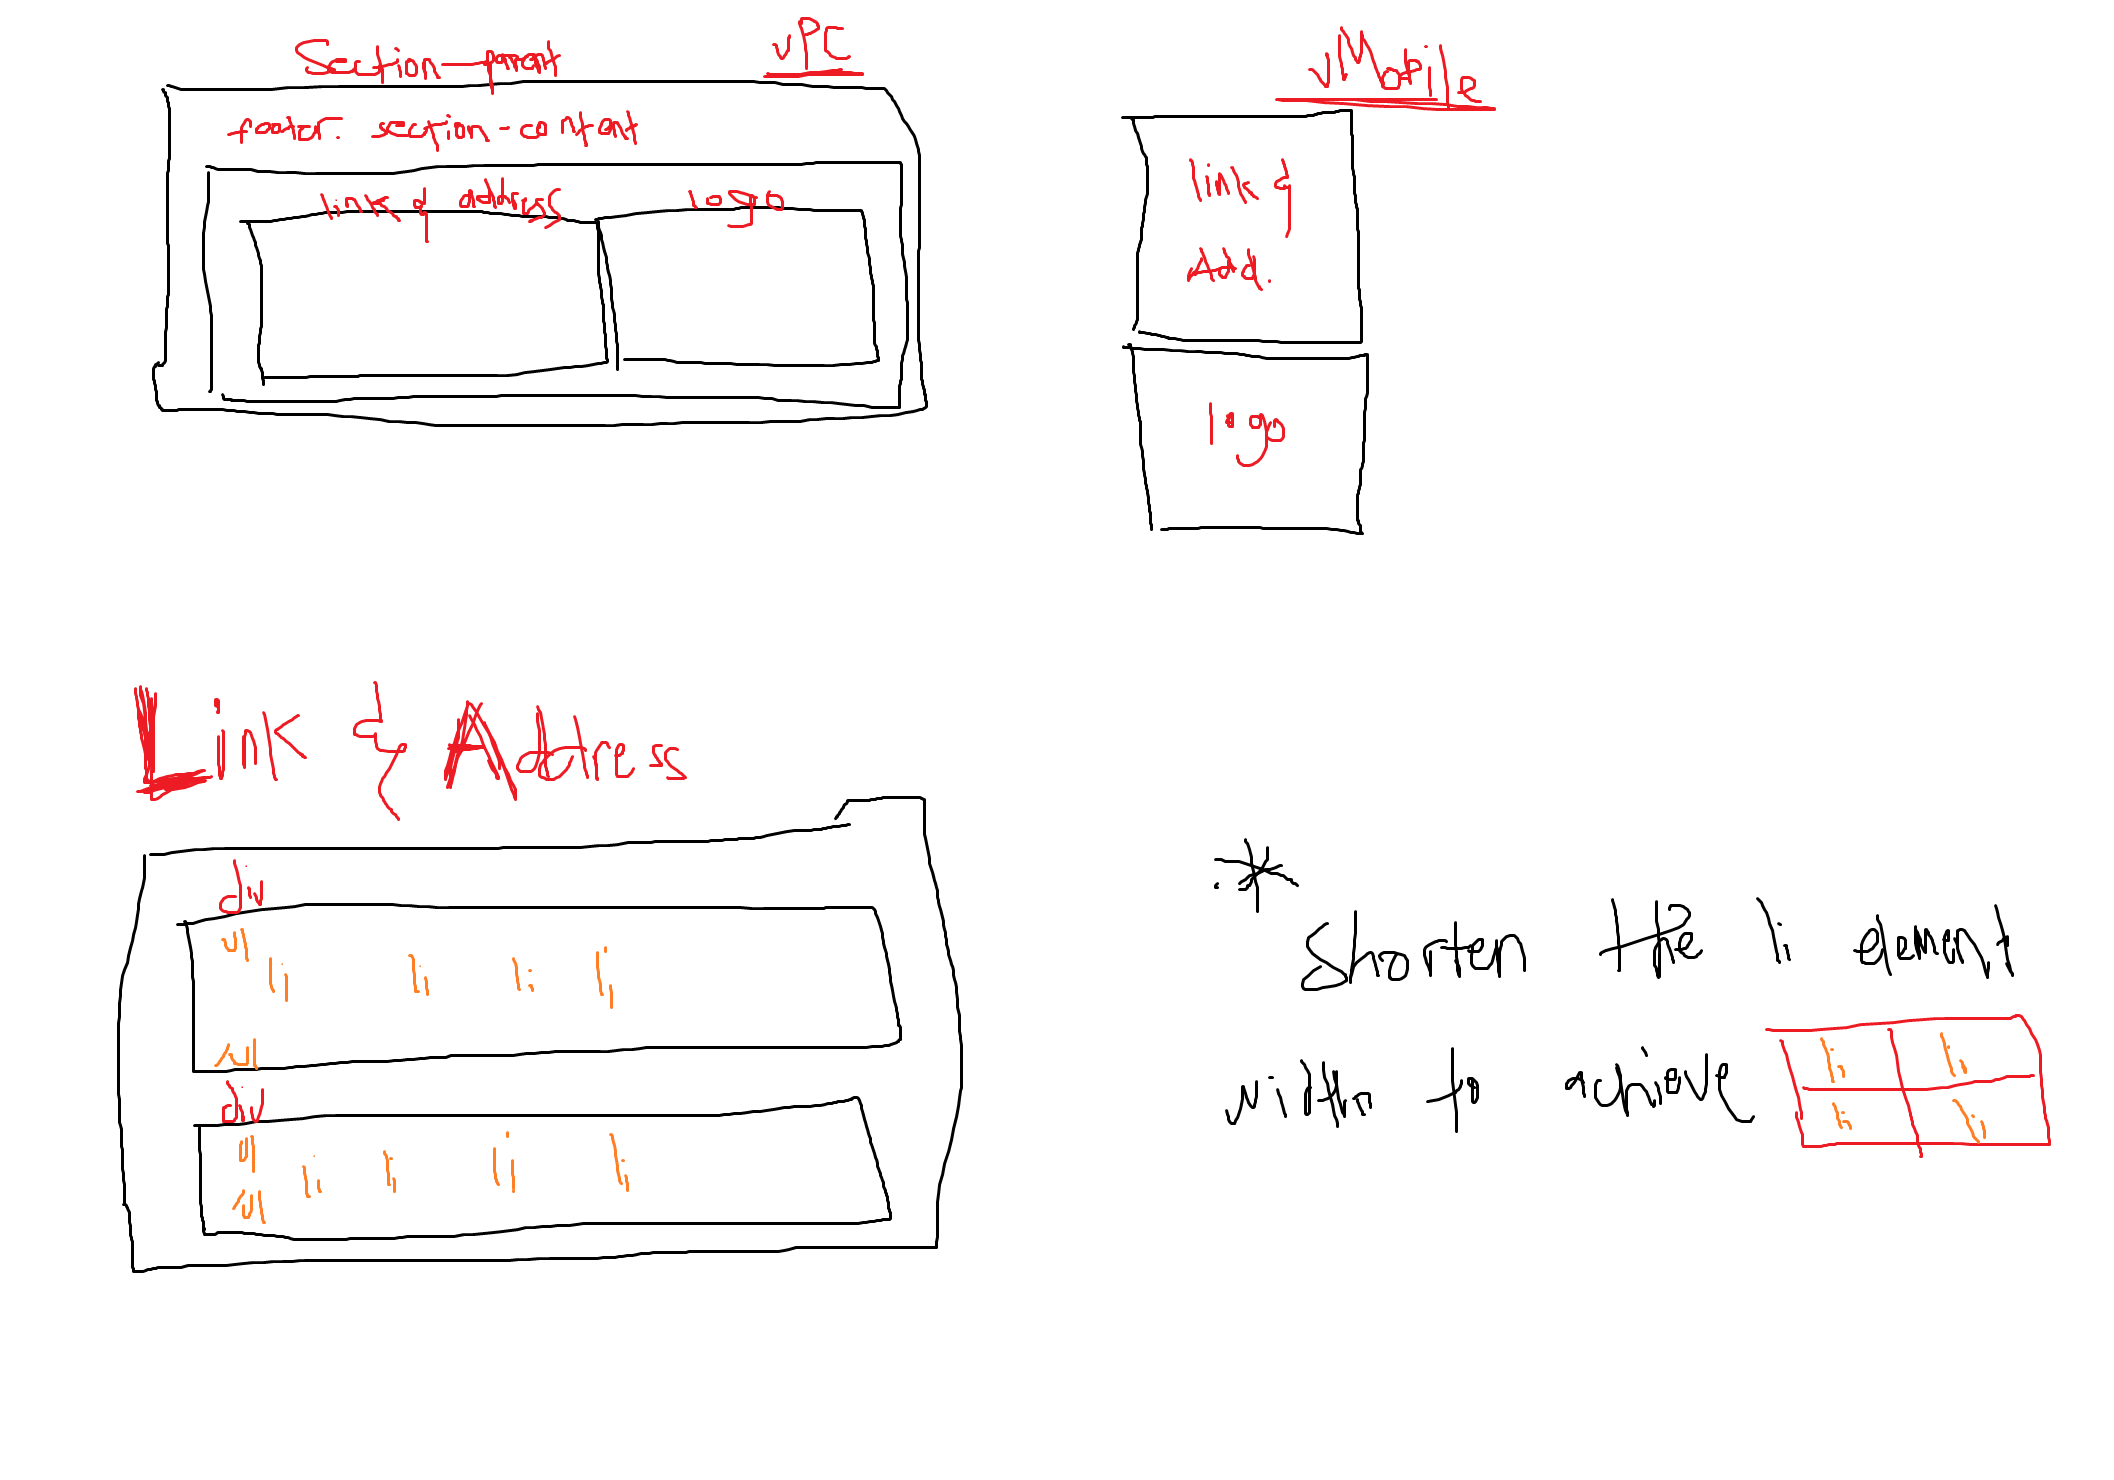 Section-parent
vPC
footer. section-content
link & address
logo
vMobile
link &
Add.
logo
Link & Address
div
ul
li li li li
div
ul
li li li li
* Shorten the li element
width to achieve
li li
li li